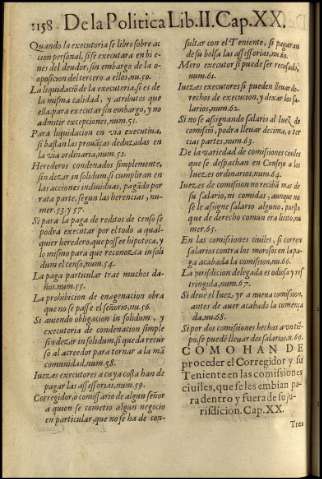 1158 De la Politica Lib.II. Cap.XX.
Quando la executoria se libro sobre ac
cion personal, si se executara en bie
nes del deudor, sin embargo de la o-
oposicion del tercero a ellos, nu.50.
La liquidacion de la executoria, si es de
la misma calidad, y atributos que
ella, para executar sin embargo, y no
admitir excepciones, num.51.
Para liquidacion en via executiua,
si bastan las prouãças deduzadas en
la via ordinaria, num.52.
Herederos condenados simplemente,
sin dezir in solidum si cumpliran en
las acciones indiuiduas, pagãdo por
rata parte, segun las herencias, nu-
mer.53.y 57.
Si para la paga de reditos de censo se
podra executar por el todo a qual-
quier heredero, que posee hipoteca, y
lo mismo para que reconozca in soli
dum el censo, num.54.
La paga particular trae muchos da-
ños, num.55.
La prohibicion de enagenacion obra
que no se passe el señorio, nu.56.
Si auiendo obligacion in solidum, y
executoria de condenacion simple
sin dezir in solidum, si queda recur
so al acreedor para tornar a la mã
comunidad, num.58.
Iuezes executores a cuya costa han de
pagar las assessorias, nu.59.
Corregidor, o comissario de algun señor
a quien se cometio algun negocio
en particular, que no se ha de con-
sultar con el Teniente, si pagaran
de su bolsa las assessorias, nu.60.
Mero executor si puede ser recusado,
num.61.
Iuezes executores si pueden lleuar de-
rechos de execucion, y dexar los sa-
larios, num.62.
Si no se assignando salario al luez de
comisiõ, podra lleuar decima, o ter
cias partes, num.63.
De la variedad de comissiones ciuiles
que se despachan en Consejo a los
Iuezes ordinarios, num.64.
Iuezes de comission no recibã mas de
su salario, ni comidas, aunque no
se le assigne salario alguno, puesto
que de derecho comun era licito, nu
mer.65.
En las comissiones ciuiles, si corren
salarios contra los morosos en la pa-
ga acabada la comission, nu.66.
La jurisdicion delegada es odiosa y res
tringida, num.67.
Si deue el Iuez yr a nueua comissiõ,
antes de auer acabado la comença
da, nu.68.
Si por dos comissiones hechas a vn tiẽ-
po, se puede lleuar dos salarios, n.69.
COMO HAN DE
proceder el Corregidor y su
Teniente en las comissiones
ciuiles, que se les embian pa-
ra dentro y fuera de su ju-
risdicion. Cap.XX.